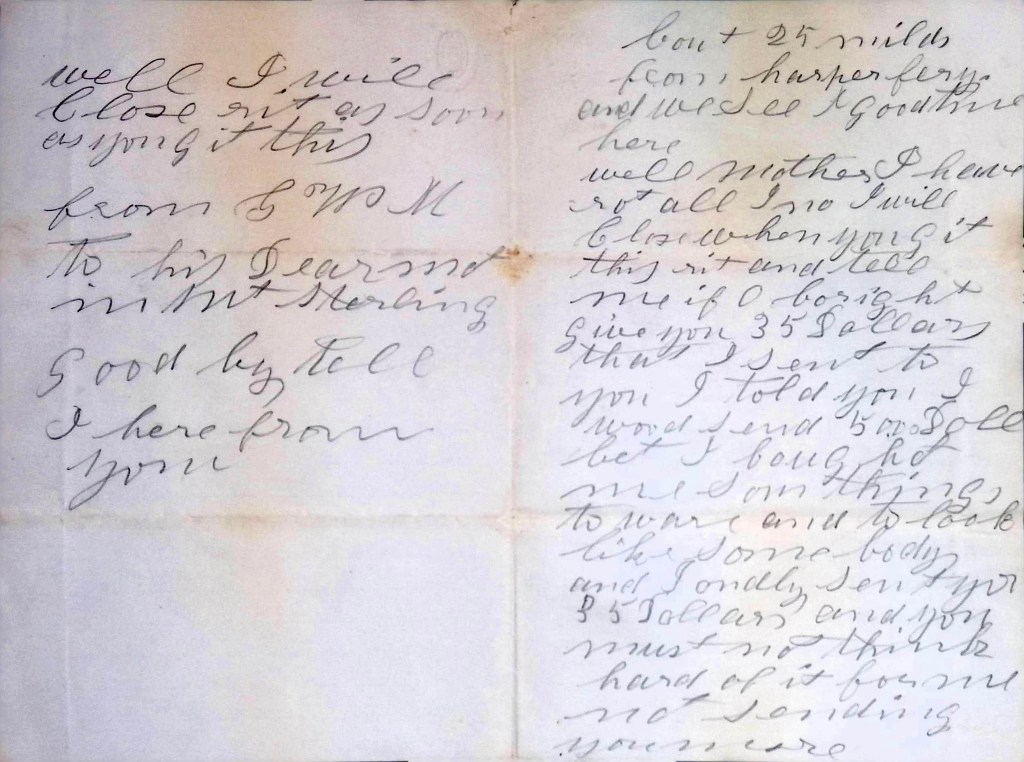 well I will
Close rit as soon
as you g it this
from G W M
to his Dear
in Mt Sterling
Good by tell
I here from
you
bout 25 milds
from harper fery
and we see good time
here
well mother I have
rot all I no I will
Close when you g it
this rit and tell
me if
Give you 35 Dollars
that I sent to
you I told you I
wood send 50 00 Doll
bet I boug ht
me som things
to ware and to look
like some body
and I ondly sent you
35 Dollars and you
must not think
hard of it for me
not sending
you more